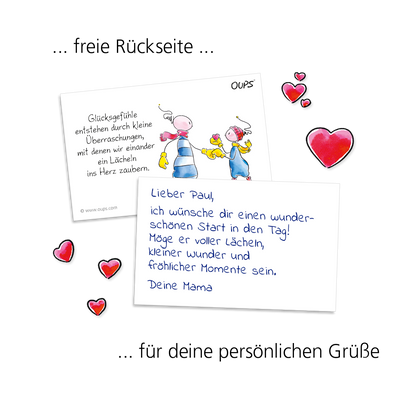 ... freie Rückseite ...
OUPS
Glücksgefühle
entstehen durch kleine
Überraschungen,
mit denen wir einander
ein Lächeln
ins Herz zaubern.
© www.oups.com
Lieber Paul,
ich wünsche dir einen wunder-
schönen Start in den Tag!
Möge er voller Lächeln,
kleiner Wunder und
fröhlicher Momente sein.
Deine Mama
... für deine persönlichen Grüße